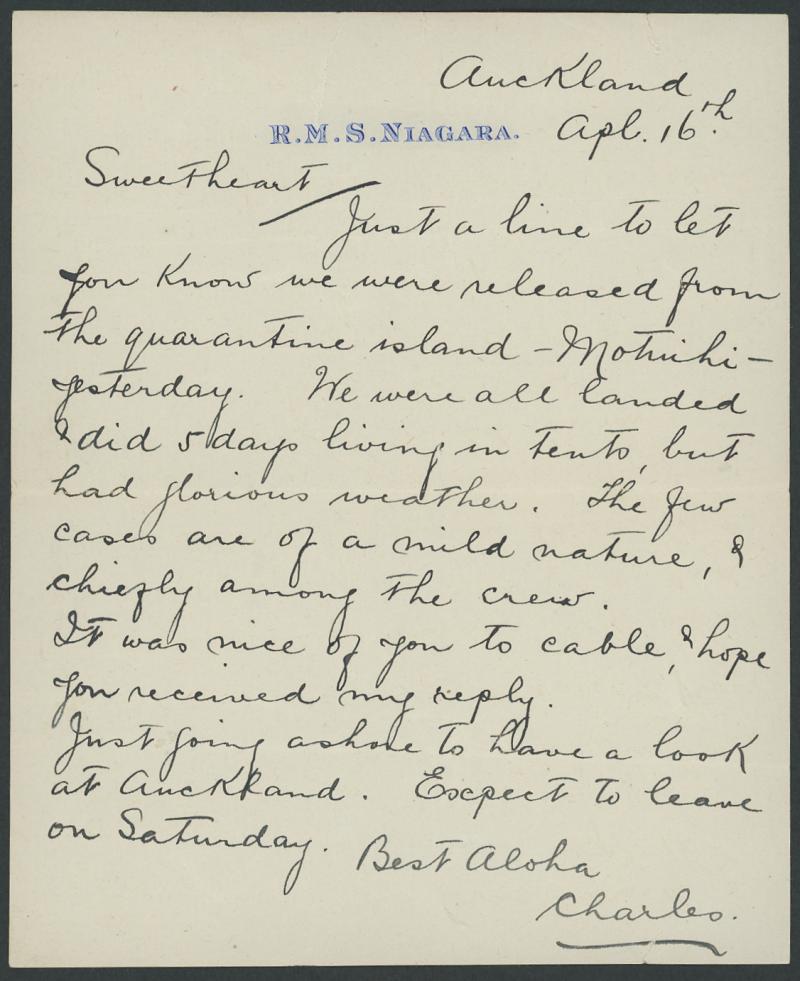 Auckland
R.M.S. NIAGARA. Apl. 16th.
Sweetheart
Just a line to let
you know we were released from
the quarantine island - Motuihi -
yesterday. We were all landed
& did 5 days living in tents, but
had glorious weather. The few
cases are of a mild nature, &
chiefly among the crew.
It was nice of you to cable, & hope
you received my reply.
Just going ashore to have a look
at Auckland. Expect to leave
on Saturday.
Best Aloha
Charles.